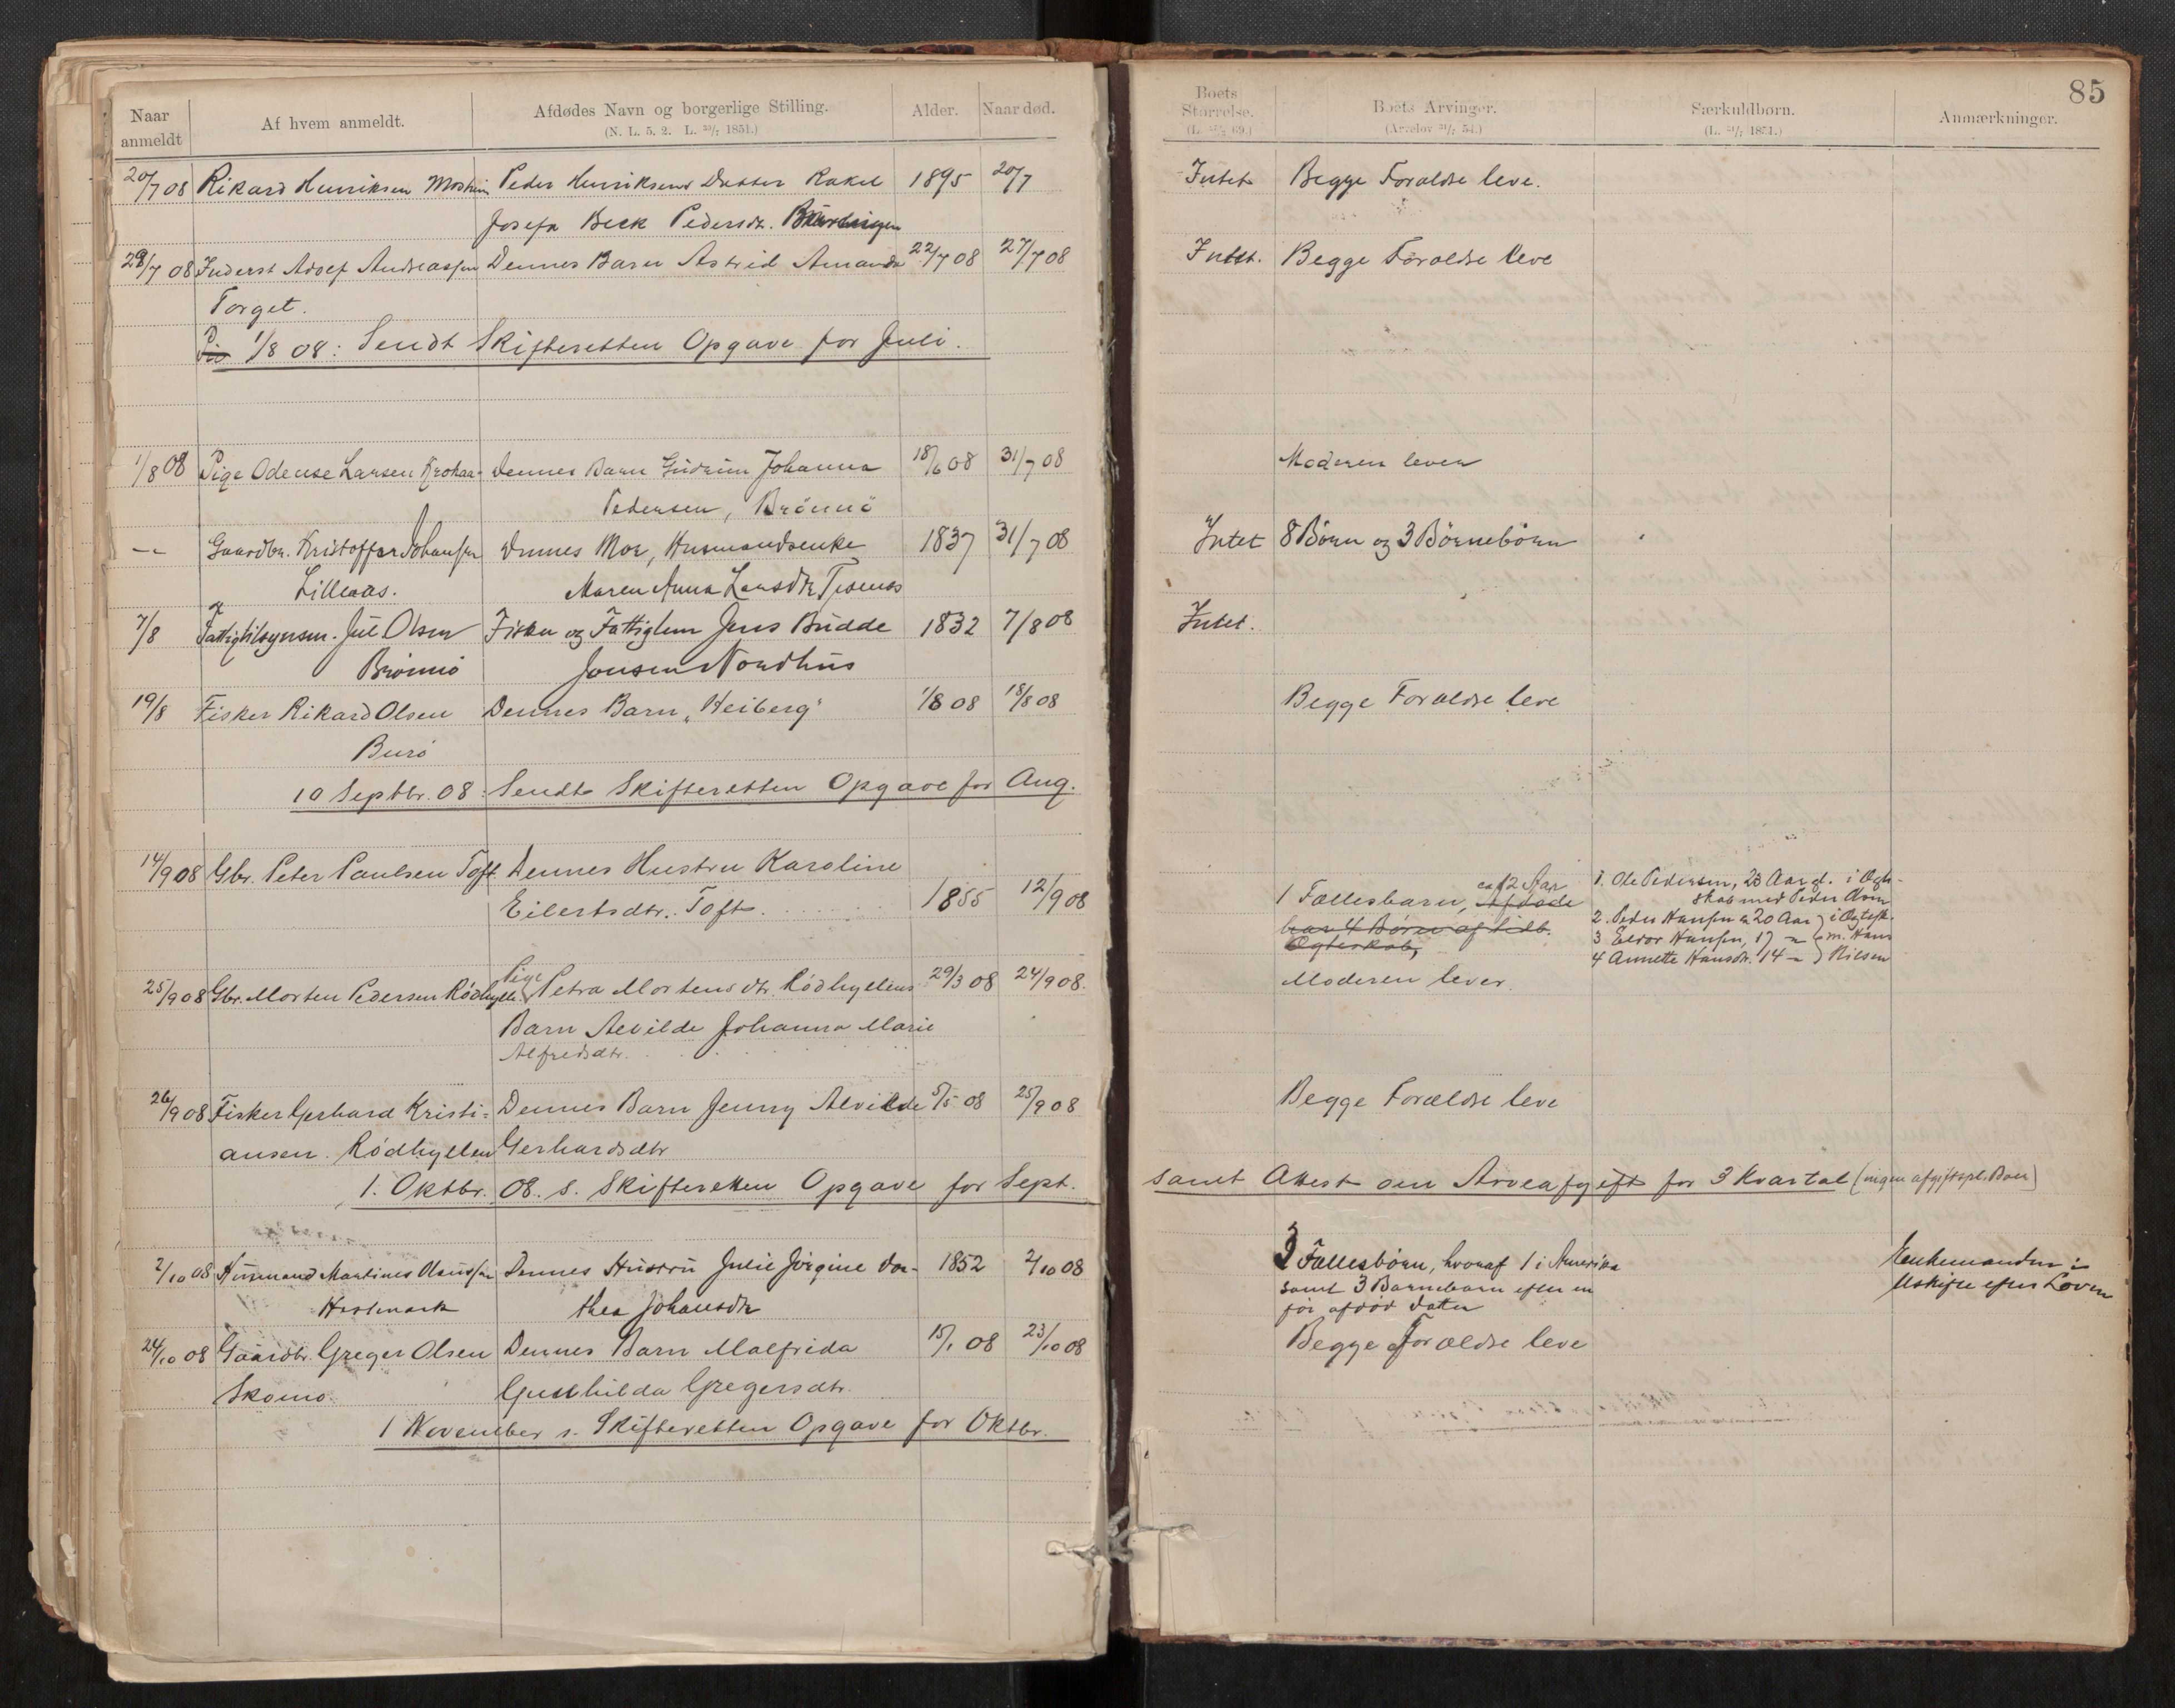 85
Naar anmeldt
Af hvem anmeldt.
Afdødes Navn og borgerlige Stilling.
(N. L. 5. 2. L. 1851.)
Alder.
Naar død.
Boets Størrelse.
(L. 69.)
Boets Arvinger.
(Arvelov 31/7 54.)
Særkuldbørn.
(L. 31/7 1851.)
Anmærkninger.
20/7 08 Rikard Henriksen Peder Henriksens Datter Rakel 1895 20/7 Intet Begge Forældre leve.
Josefa Beck Pedersdt.
28/7 08 Inderst Adolf Andreassen Dennes Barn Astrid Amanda 22/7 08 27/7 08 Intet. Begge Forældre leve
Torget.
1/8 08: Sendt Skifteretten Opgave for Juli.
1/8 08 Pige Odense Larsen Dennes Barn Gudrun Johanna 18/6 08 31/7 08 Moderen lever
Pedersen, Brønnø
-"- Gaardbr. Kristoffer Johansen Dennes Mor, Husmandsenke 1837 31/7 08 Intet 8 Børn og 3 Børnebørn
Lilleaas. Maren Anna Larsdtr
7/8 Fattigtilsynsm. Jul Olsen Fisker og Fattiglem Jens Budde 1832 7/8 08 Intet.
Brønnø Jonsen Nordhus
19/8 Fisker Rikard Olsen Dennes Barn „Heiberg" 1/8 08 18/8 08 Begge Forældre leve
Burø
10 Septbr. 08: Sendt Skifteretten Opgave for Aug.
14/9 08 Gbr. Peter Paulsen Toft Dennes Hustru Karoline
Eilertsdtr. Toft 1855 12/9 08 1 Fællesbarn, ca 12 Aar Afdøde
har 4 Børn af tidl.
Ægteskab,
1. Ole Pedersen, 23 Aar gl. i Ægte-
skab med Peder Olsen
2. Peder Hansen 20 Aar } i Ægtesk.
3 Eldor Hansen, 17 -"- } m. Hans
4 Annette Hansdtr. 14 -"- } Nilsen
25/9 08 Gbr. Morten Pedersen Rødhyllen Pige Petra Mortensdtr. Rødhyllens 29/3 08 24/9 08. Moderen lever.
Barn Alvilde Johanna Marie
Alfredsdtr.
26/9 08 Fisker Gerhard Kristi- Dennes Barn Jenny Alvilde 5/5 08 25/9 08 Begge Forældre leve
ansen. Rødhyllen Gerhardsdtr
1. Oktbr. 08. s. Skifteretten Opgave for Sept. samt Attest om Arveafgift for 3 Kvartal (ingen afgiftspl. Boer)
2/10 08 Husmand Martinus Dennes Hustru Julie Jørgine Dor- 1852 2/10 08 Fællesbørn, hvoraf 1 i Amerika Enkemanden i
thea Johansdtr samt 3 Barnebarn efter en Uskifte efter Loven
før afdød Datter
24/10 08 Gaardbr. Greger Olsen Dennes Barn Malfrida 15/1 08 23/10 08 Begge Forældre leve
Skomo. Gunhilda Gregersdtr.
1 November s. Skifteretten Opgave for Oktbr.